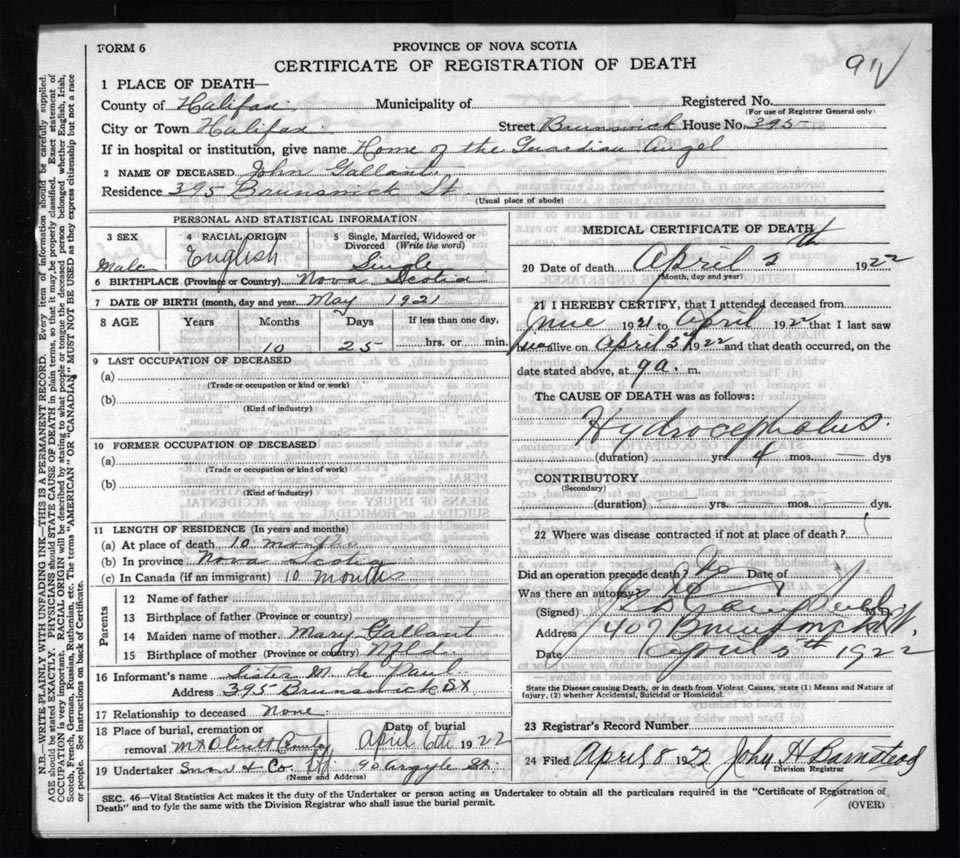 FORM 6
PROVINCE OF NOVA SCOTIA
CERTIFICATE OF REGISTRATION OF DEATH
91
1 PLACE OF DEATH—
County of Halifax Municipality of Registered No.
(For use of Registrar General only)
City or Town Halifax Street Brunswick House No. 395
If in hospital or institution, give name Home of the Guardian Angel
2 NAME OF DECEASED John Gallant
Residence 395 Brunswick St
(Usual place of abode)
PERSONAL AND STATISTICAL INFORMATION
3 SEX 4 RACIAL ORIGIN 5 Single, Married, Widowed or Divorced (Write the word)
Male English Single
6 BIRTHPLACE (Province or Country) Nova Scotia
7 DATE OF BIRTH (month, day and year) May 1921
8 AGE Years Months Days If less than one day,
10 25 hrs. or min.
9 LAST OCCUPATION OF DECEASED
(a)
(Trade or occupation or kind or work)
(b)
(Kind of industry)
10 FORMER OCCUPATION OF DECEASED
(a)
(Trade or occupation or kind of work)
(b)
(Kind of industry)
11 LENGTH OF RESIDENCE (In years and months)
(a) At place of death 10 months
(b) In province Nova Scotia
(c) In Canada (if an immigrant) 10 months
Parents
12 Name of father
13 Birthplace of father (Province or country)
14 Maiden name of mother Mary Gallant
15 Birthplace of mother (Province or country) Nfld
16 Informant's name Sister M. de Paul
Address 395 Brunswick St
17 Relationship to deceased None
18 Place of burial, cremation or removal Mt Olivett Date of burial April 6th 1922
19 Undertaker Snow & Co. Ltd 90 Argyle St.
(Name and Address)
MEDICAL CERTIFICATE OF DEATH
20 Date of death April 5th 1922
(Month, day and year)
21 I HEREBY CERTIFY, that I attended deceased from
June 1921 to April 1922 that I last saw
alive on April 5th 1922 and that death occurred, on the
date stated above, at 9 a. m.
The CAUSE OF DEATH was as follows:
Hydrocephalus.
(duration) yrs. 4 mos. — dys
CONTRIBUTORY
(Secondary)
(duration) yrs. mos. dys.
22 Where was disease contracted if not at place of death?
Did an operation precede death? No Date of
Was there an autopsy? No
(Signed) M.D.
Address 407 Brunswick St.
Date April 5th 1922
State the Disease causing Death, or in death from Violent Causes, state (1) Means and Nature of
Injury, (2) whether Accidental, Suicidal or Homicidal.
23 Registrar's Record Number
24 Filed April 8 1922 John H Barnstead
Division Registrar
SEC. 46—Vital Statistics Act makes it the duty of the Undertaker or person acting as Undertaker to obtain all the particulars required in the "Certificate of Registration of
Death" and to fyle the same with the Division Registrar who shall issue the burial permit.
(OVER)
N.B.—WRITE PLAINLY WITH UNFADING INK—THIS IS A PERMANENT RECORD. Every item of information should be carefully supplied.
AGE should be stated EXACTLY. PHYSICIANS should STATE CAUSE OF DEATH in plain terms, so that it may be properly classified. Exact statement of
OCCUPATION is very important. RACIAL ORIGIN will be described by stating to what people or tongue the deceased person belonged whether English, Irish,
Scotch, French, German, Russian, Ruthenian, etc. The terms "AMERICAN" OR "CANADIAN" MUST NOT BE USED as they express citizenship but not a race
or people. See instructions on back of Certificate.